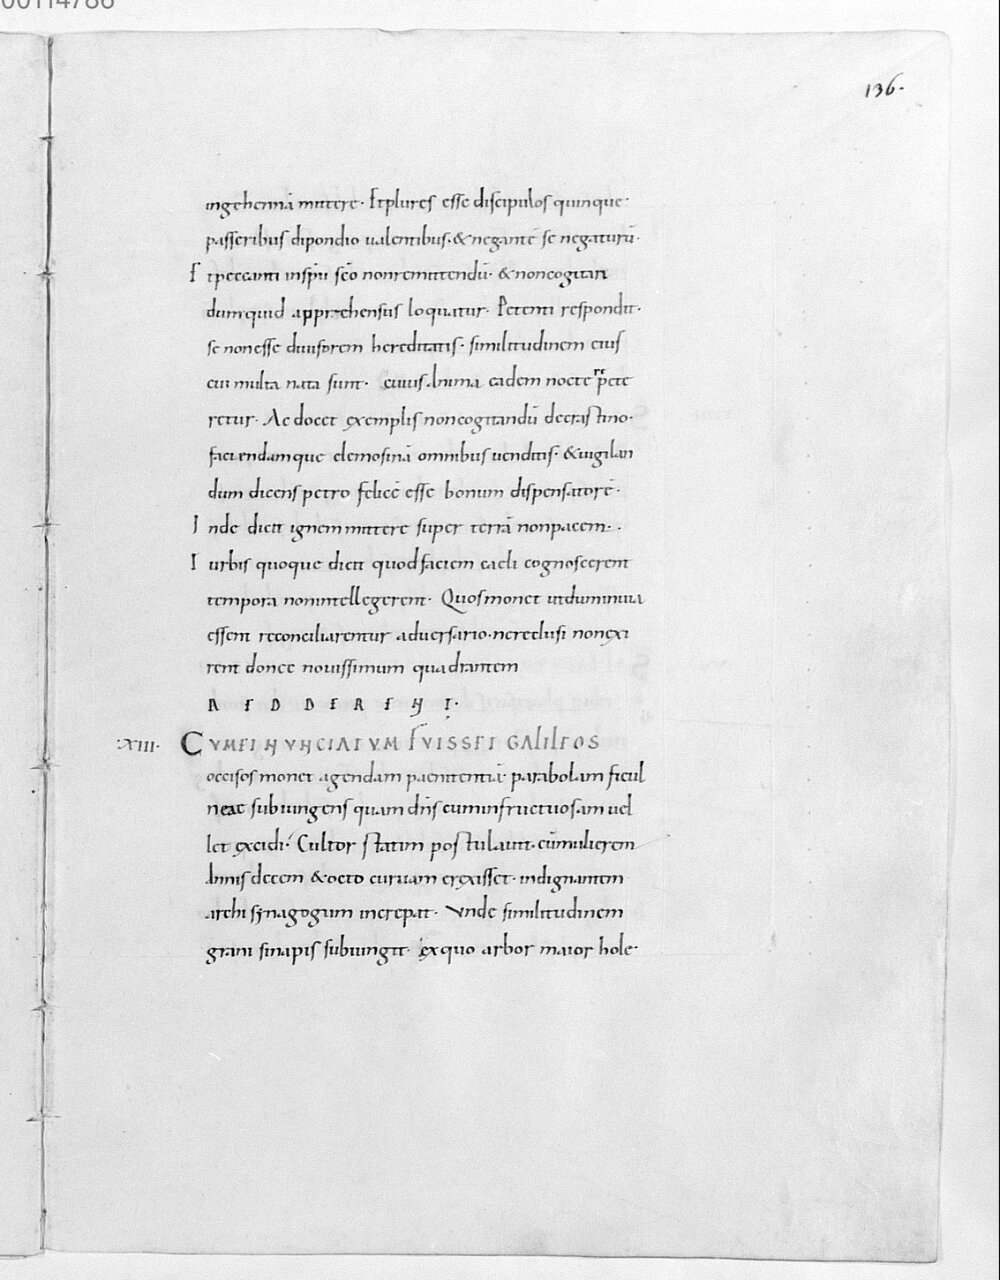 00114786
136.
ingehennā mittere· Et plures esse discipulos quinque·
passeribus dipondio ualentibus·& negantē se negaturū·
Et peccanti inspū scō nonremittendū· & noncogitan
dum quid apprehensus loquatur· Petenti respondit·
se nonesse diuisorem hereditatis· similitudinem eius
cui multa nata sunt· cuius Anima eadem nocte pete
retur· Ac docet exemplis noncogitandū decrastino·
faciendamque elemosinā omnibus uenditis· & uigilan
dum dicens petro felicē esse bonum dispensatorē·
Inde dicit ignem mittere super terrā nonpacem·
Iurbis quoque dicit quod faciem caeli cognoscerent
tempora nonintellegerent· Quos monet utdum in uia
essent reconciliarentur aduersario· ne reclusi nonexi
rent donec nouissimum quadrantem
REDDERENT·
·XIII· CUM EI NUNCIATUM FUISSET GALILEOS
occisos monet agendam paenitentiā· parabolam ficul
neae subiungens quam dn̄s cum infructuosam uel
let excidi· Cultor statim postulauit· cū mulierem
Annis decem & octo curuam erexisset· indignantem
archisynagogum increpat· Vnde similitudinem
grani sinapis subiungit· ex quo arbor maior hole·